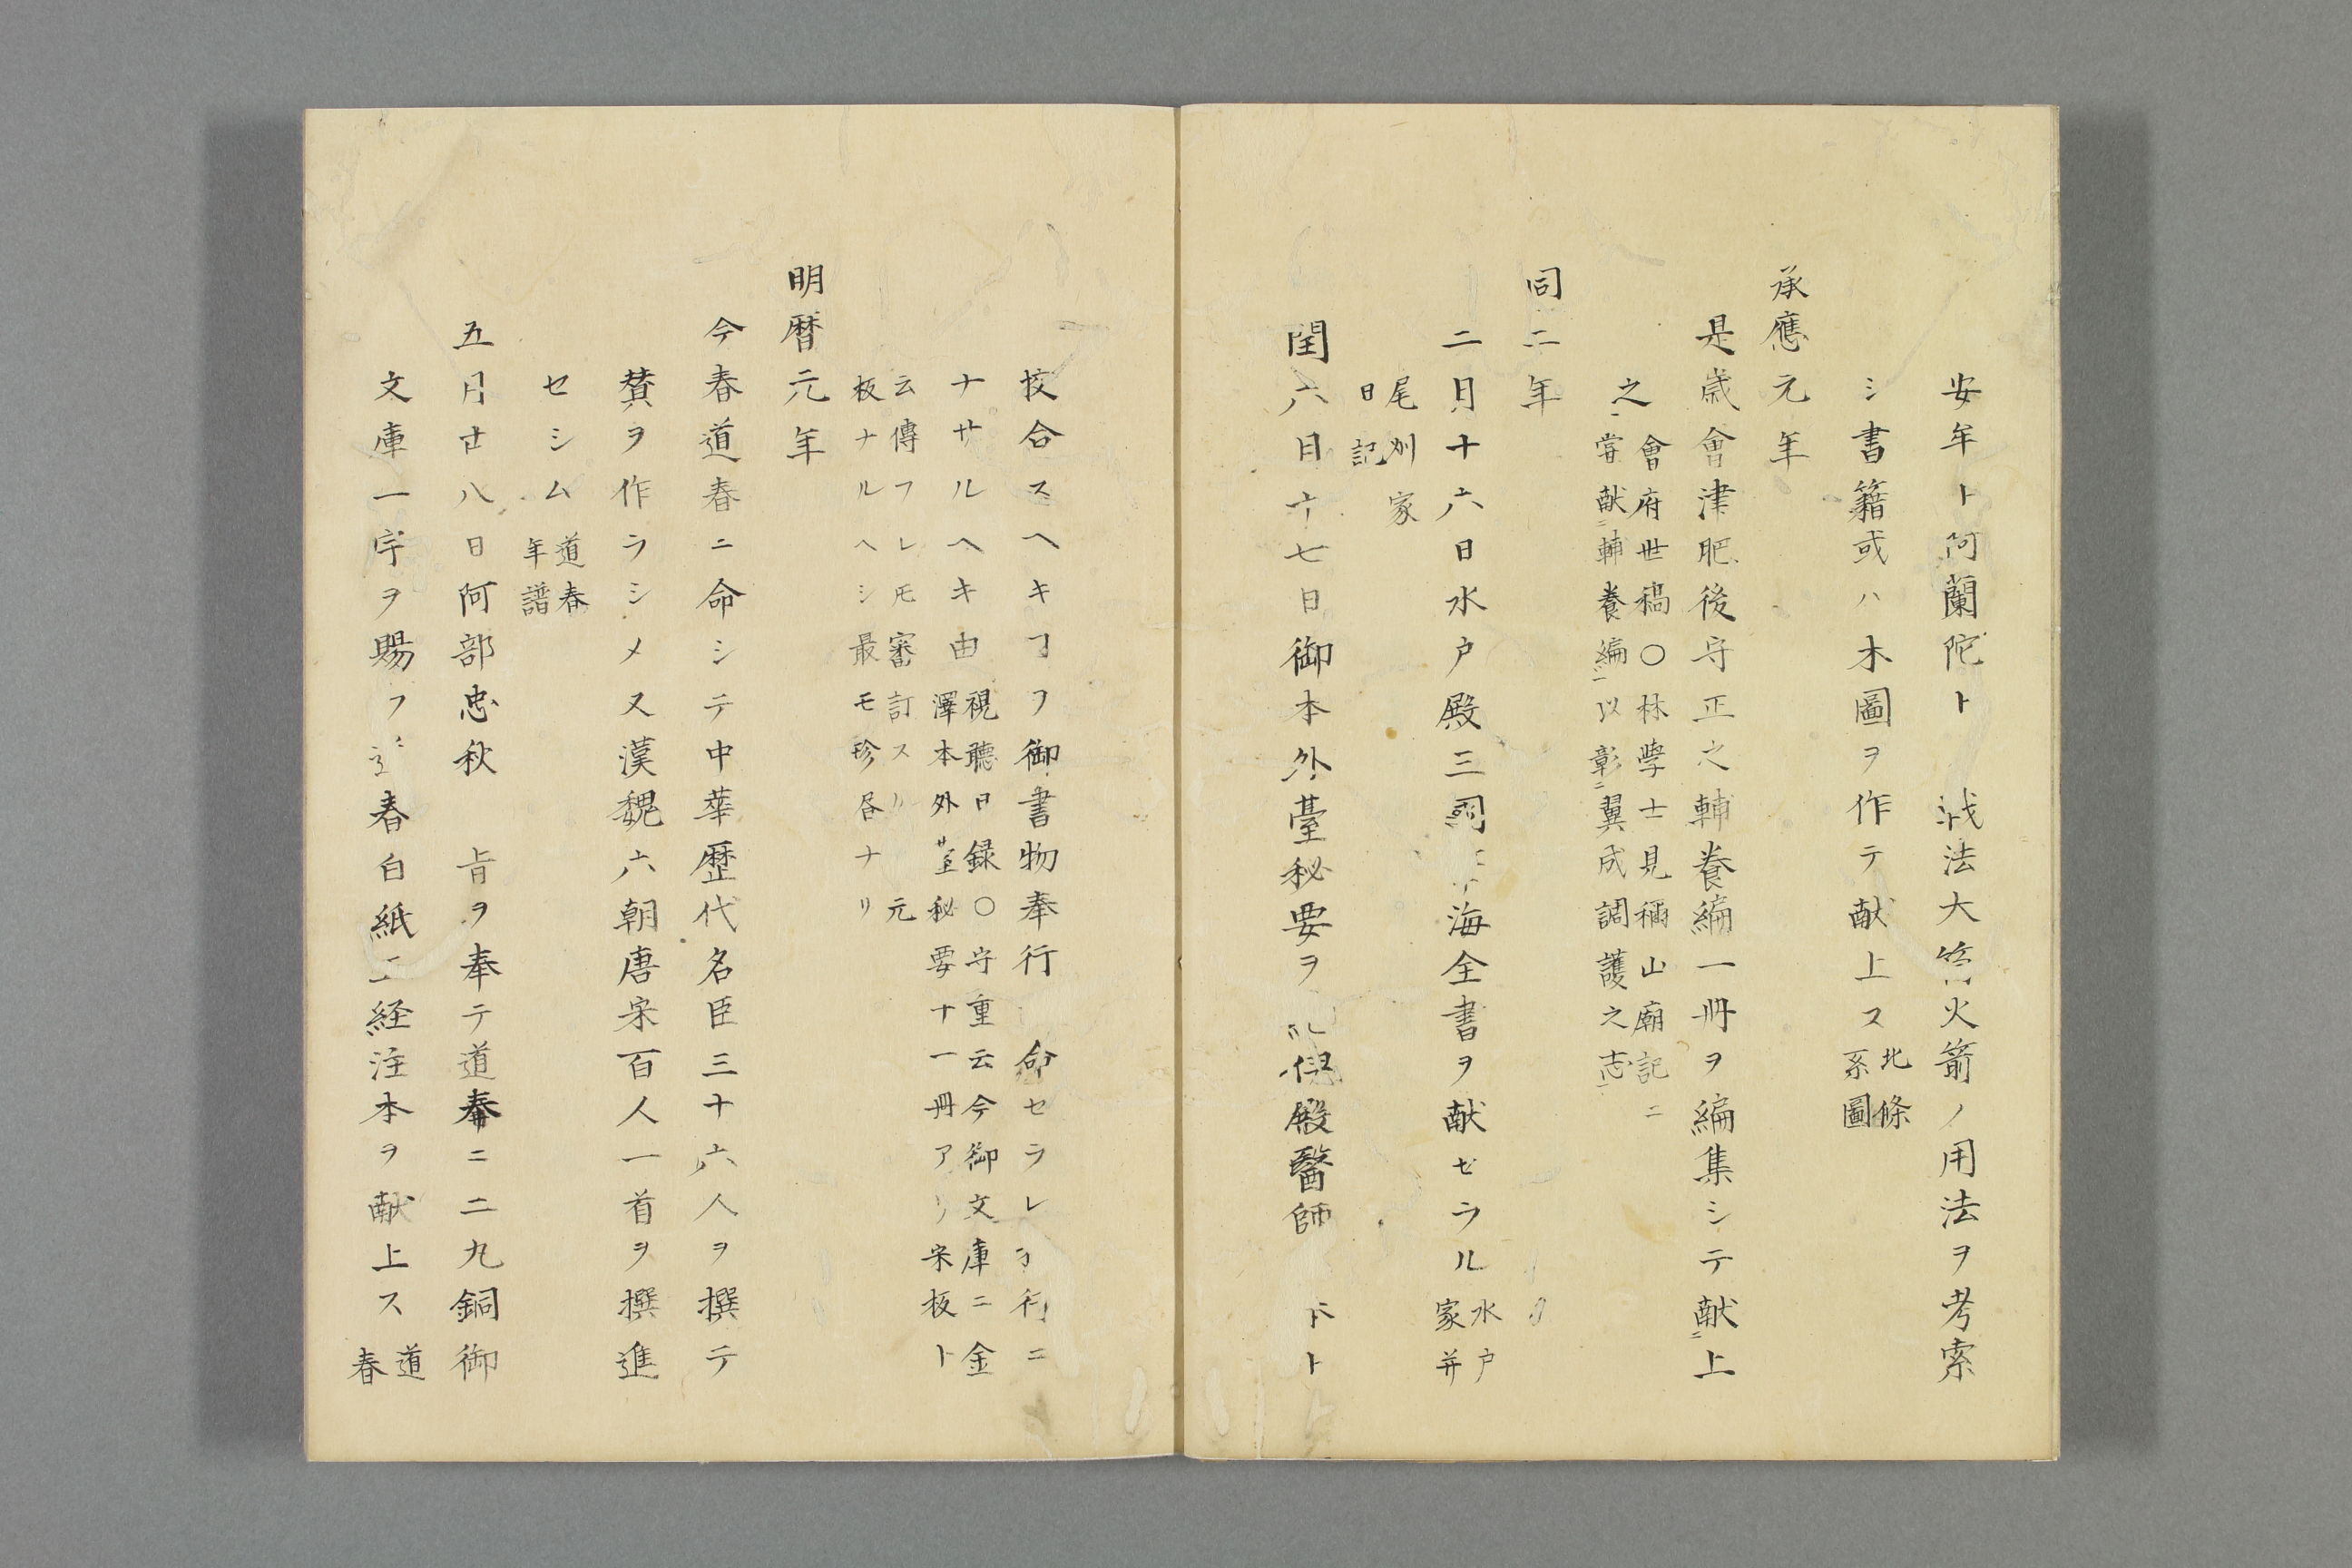 安年ト阿蘭陀ト 戦法大 火箭ノ用法ヲ考索
シ書籍或ハ木圖ヲ作テ献上ス北條
系圖
承應元年
是歳會津肥後守正之輔養編一冊ヲ編集シテ献上
之會府世稿○林學士見禰山廟記ニ
嘗献輔養編以彰翼成調護之志
同二年
二月十六日水戸殿三 海全書ヲ献セラル水戸
家并
尾刕家
日記
閏六月十七日御本外臺秘要ヲ 殿醫師 ト
校合スヘキヿヲ御書物奉行 命セラレ ニ
ナサルヘキ由視聽日録○守重云今御文庫ニ金
澤本外䑓秘要十一冊アリ宋板ト
云傳フレ𪜈審訂スリ 元
板ナルヘシ最モ珍昏ナリ
明暦元年
今春道春ニ命シテ中華歴代名臣三十六人ヲ撰テ
賛ヲ作ラシメ又漢魏六朝唐宋百人一首ヲ撰進
セシム道春
年譜
五月廿八日阿部忠秋 旨ヲ奉テ道春ニ二九銅御
文庫一宇ヲ賜フ 春白紙ニ経注本ヲ献上ス道
春